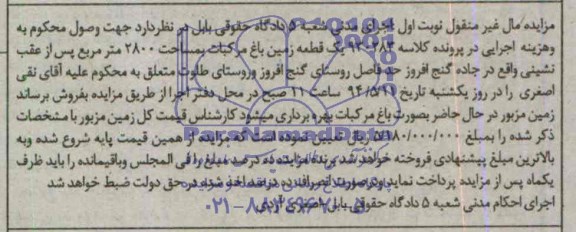 مزایده مال غیر منقول نوبت اول اجرای مدنی شعبه ۵ دادگاه حقوقی بابل در نظر دارد جهت وصول محکوم به
وهزینه اجرایی در پرونده کلاسه یک قطعه زمین باغ مرکبات بمساحت ۲۸۰۰ متر مربع پس از عقب
نشینی واقع در جاده گنج افروز حد فاصل روستای گنج افروز وروستای طلوت متعلق به محکوم علیه آقای تقی
اصغری را در روز یکشنبه تاریخ ساعت ۱۱ صبح در محل دفتر اجرا از طریق مزایده بفروش برساند
زمین مزبور در حال حاضر بصورت باغ مرکبات بهره برداری میشود کارشناس قیمت کل زمین مزبور با مشخصات
ذکر شده را بمبلغ ریال تعیین نموده است که مزایده از همین قیمت پایه شروع شده وبه
بالاترین مبلغ پیشنهادی فروخته خواهد شد برنده مزایده ده درصد مبلغ را فی المجلس وباقیمانده را باید ظرف
یکماه پس از مزایده پرداخت نماید ودر صورت انصراف ده درصد اخذ شده در حق دولت ضبط خواهد شد
اجرای احکام مدنی شعبه ۵ دادگاه حقوقی بابل
ParsNamadData